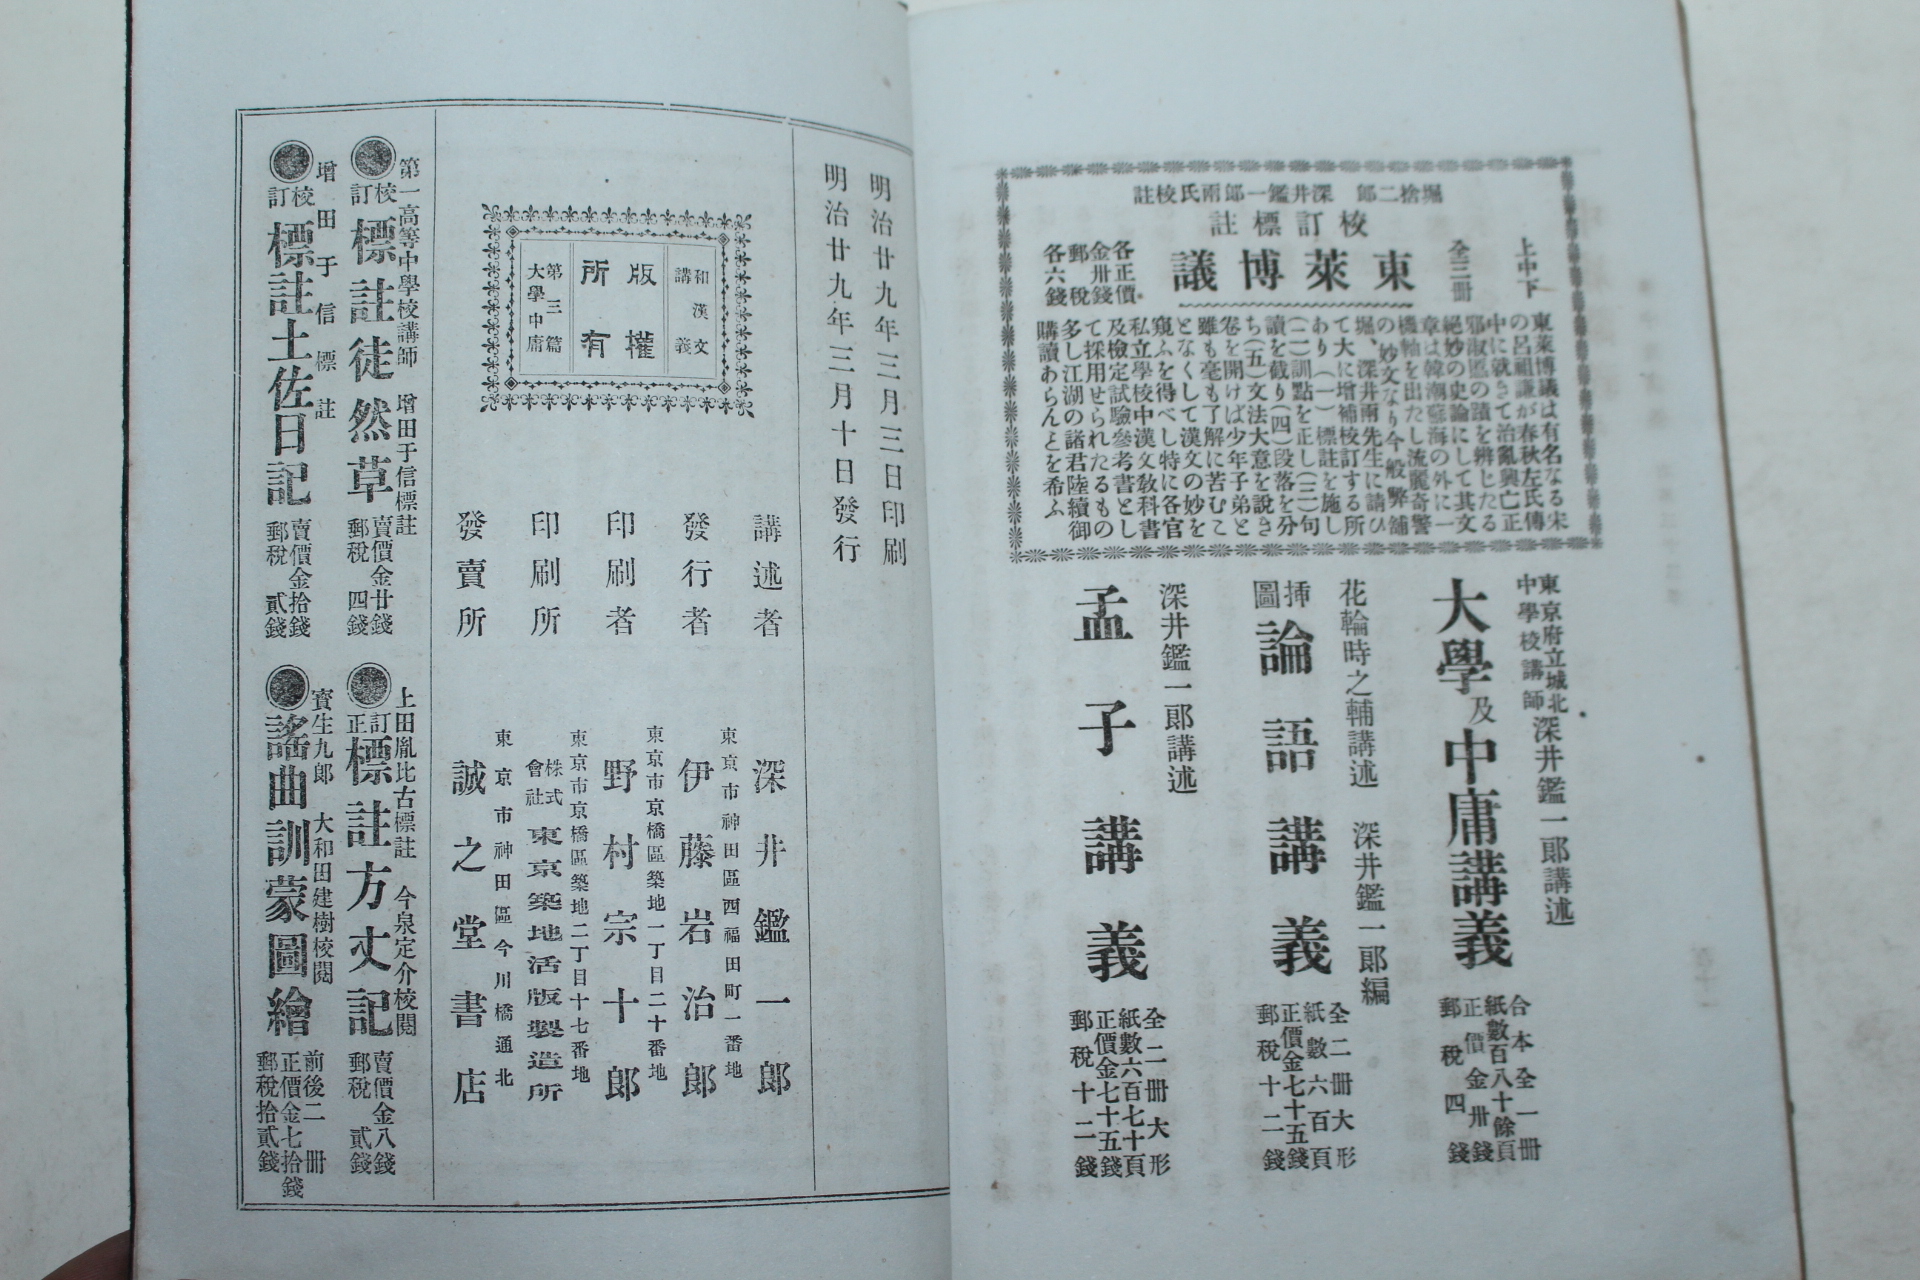 堀捨二郎　深井鑑一郎兩氏校註
校訂標註
東萊博議
上中下
全三冊
各正價
金卅錢
郵稅
各六錢
東萊博議は有名なる宋
の呂祖謙が春秋左氏傳
中に就きて治亂興亡正
邪淑慝の蹟を辨じたる
絕妙の史論にして其文
章は韓潮蘇海の外に一
機軸を出たし流麗奇警
の妙文なり今般弊舖
堀、深井兩先生に請ひ
て大に增補校訂する所
あり（一）標註を施し
（二）訓點を正し（三）句
讀を截り（四）段落を分
ち（五）文法大意を說き
卷を開けば少年子弟と
雖も毫も了解に苦むこ
となくして漢文の妙を
窺ふを得べし特に各官
私立學校中漢文敎科書
及檢定試驗參考書とし
て採用せられたるもの
多し江湖の諸君陸續御
購讀あらんとを希ふ
東京府立城北
中學校講師
深井鑑一郎講述
大學及中庸講義
合本全一冊
紙數百八十餘頁
正價金卅錢
郵稅四錢
花輪時之輔講述　深井鑑一郎編
挿圖
論語講義
全二冊大形
紙數六百頁
正價金七十五錢
郵稅十二錢
深井鑑一郎講述
孟子講義
全二冊大形
紙數六百七十頁
正價金七十五錢
郵稅十二錢
明治廿九年三月三日印刷
明治廿九年三月十日發行
和漢文
講義
版權
所有
第三篇
大學中庸
講述者　深井鑑一郎
東京市神田區西福田町一番地
發行者　伊藤岩治郎
東京市京橋區築地一丁目二十番地
印刷者　野村宗十郎
東京市京橋區築地二丁目十七番地
印刷所　株式會社　東京築地活版製造所
東京市神田區今川橋通北
發賣所　誠之堂書店
第一高等中學校講師　增田于信標註
校訂　標註徒然草
賣價金廿錢
郵稅四錢
上田胤比古標註　今泉定介校閱
訂正　標註方丈記
賣價金八錢
郵稅貳錢
增田于信標註
校訂　標註土佐日記
賣價金拾錢
郵稅貳錢
寳生九郎　大和田建樹校閱
謠曲訓蒙圖繪
前後二冊
正價金七拾錢
郵稅拾貳錢